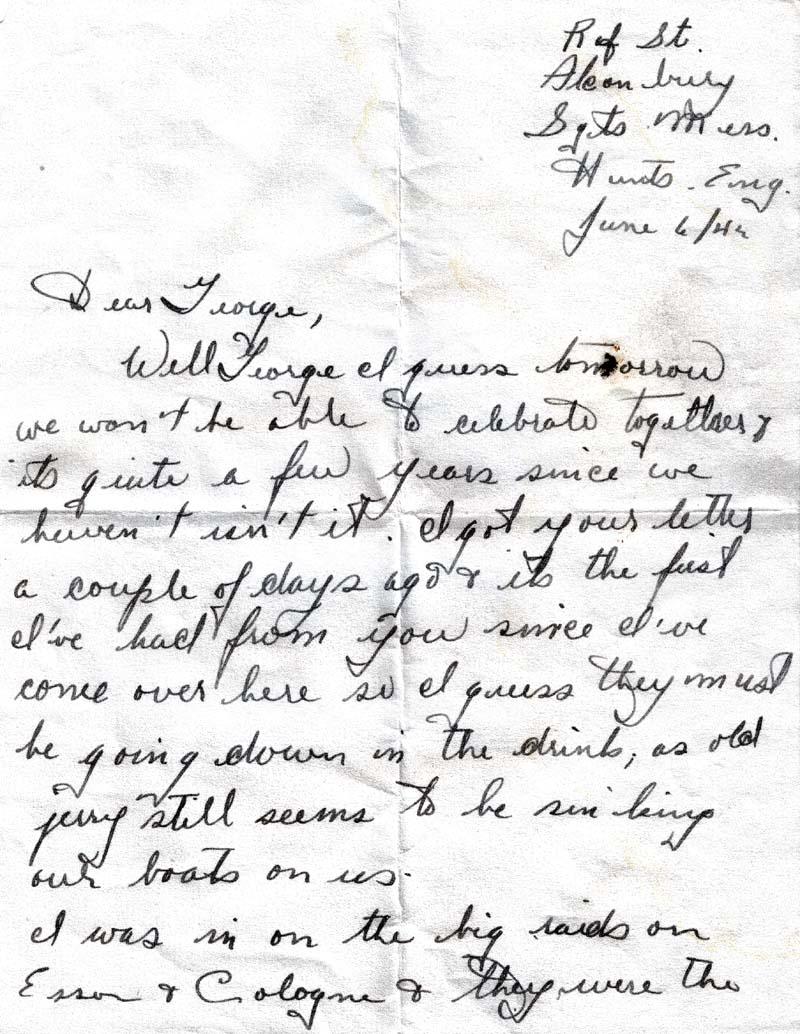 Raf St.
Alconbury
Sgts Mess.
Hunts. Eng.
June 6/42
Dear George,
Well George I guess tomorrow
we won't be able to celebrate together &
its quite a few years since we
haven't isn't it. I got your letter
a couple of days ago & its the first
I've had from you since I've
come over here so I guess they must
be going down in the drink, as old
jerry still seems to be sinking
our boats on us.
I was in on the big raids on
Essen & Cologne & they were the